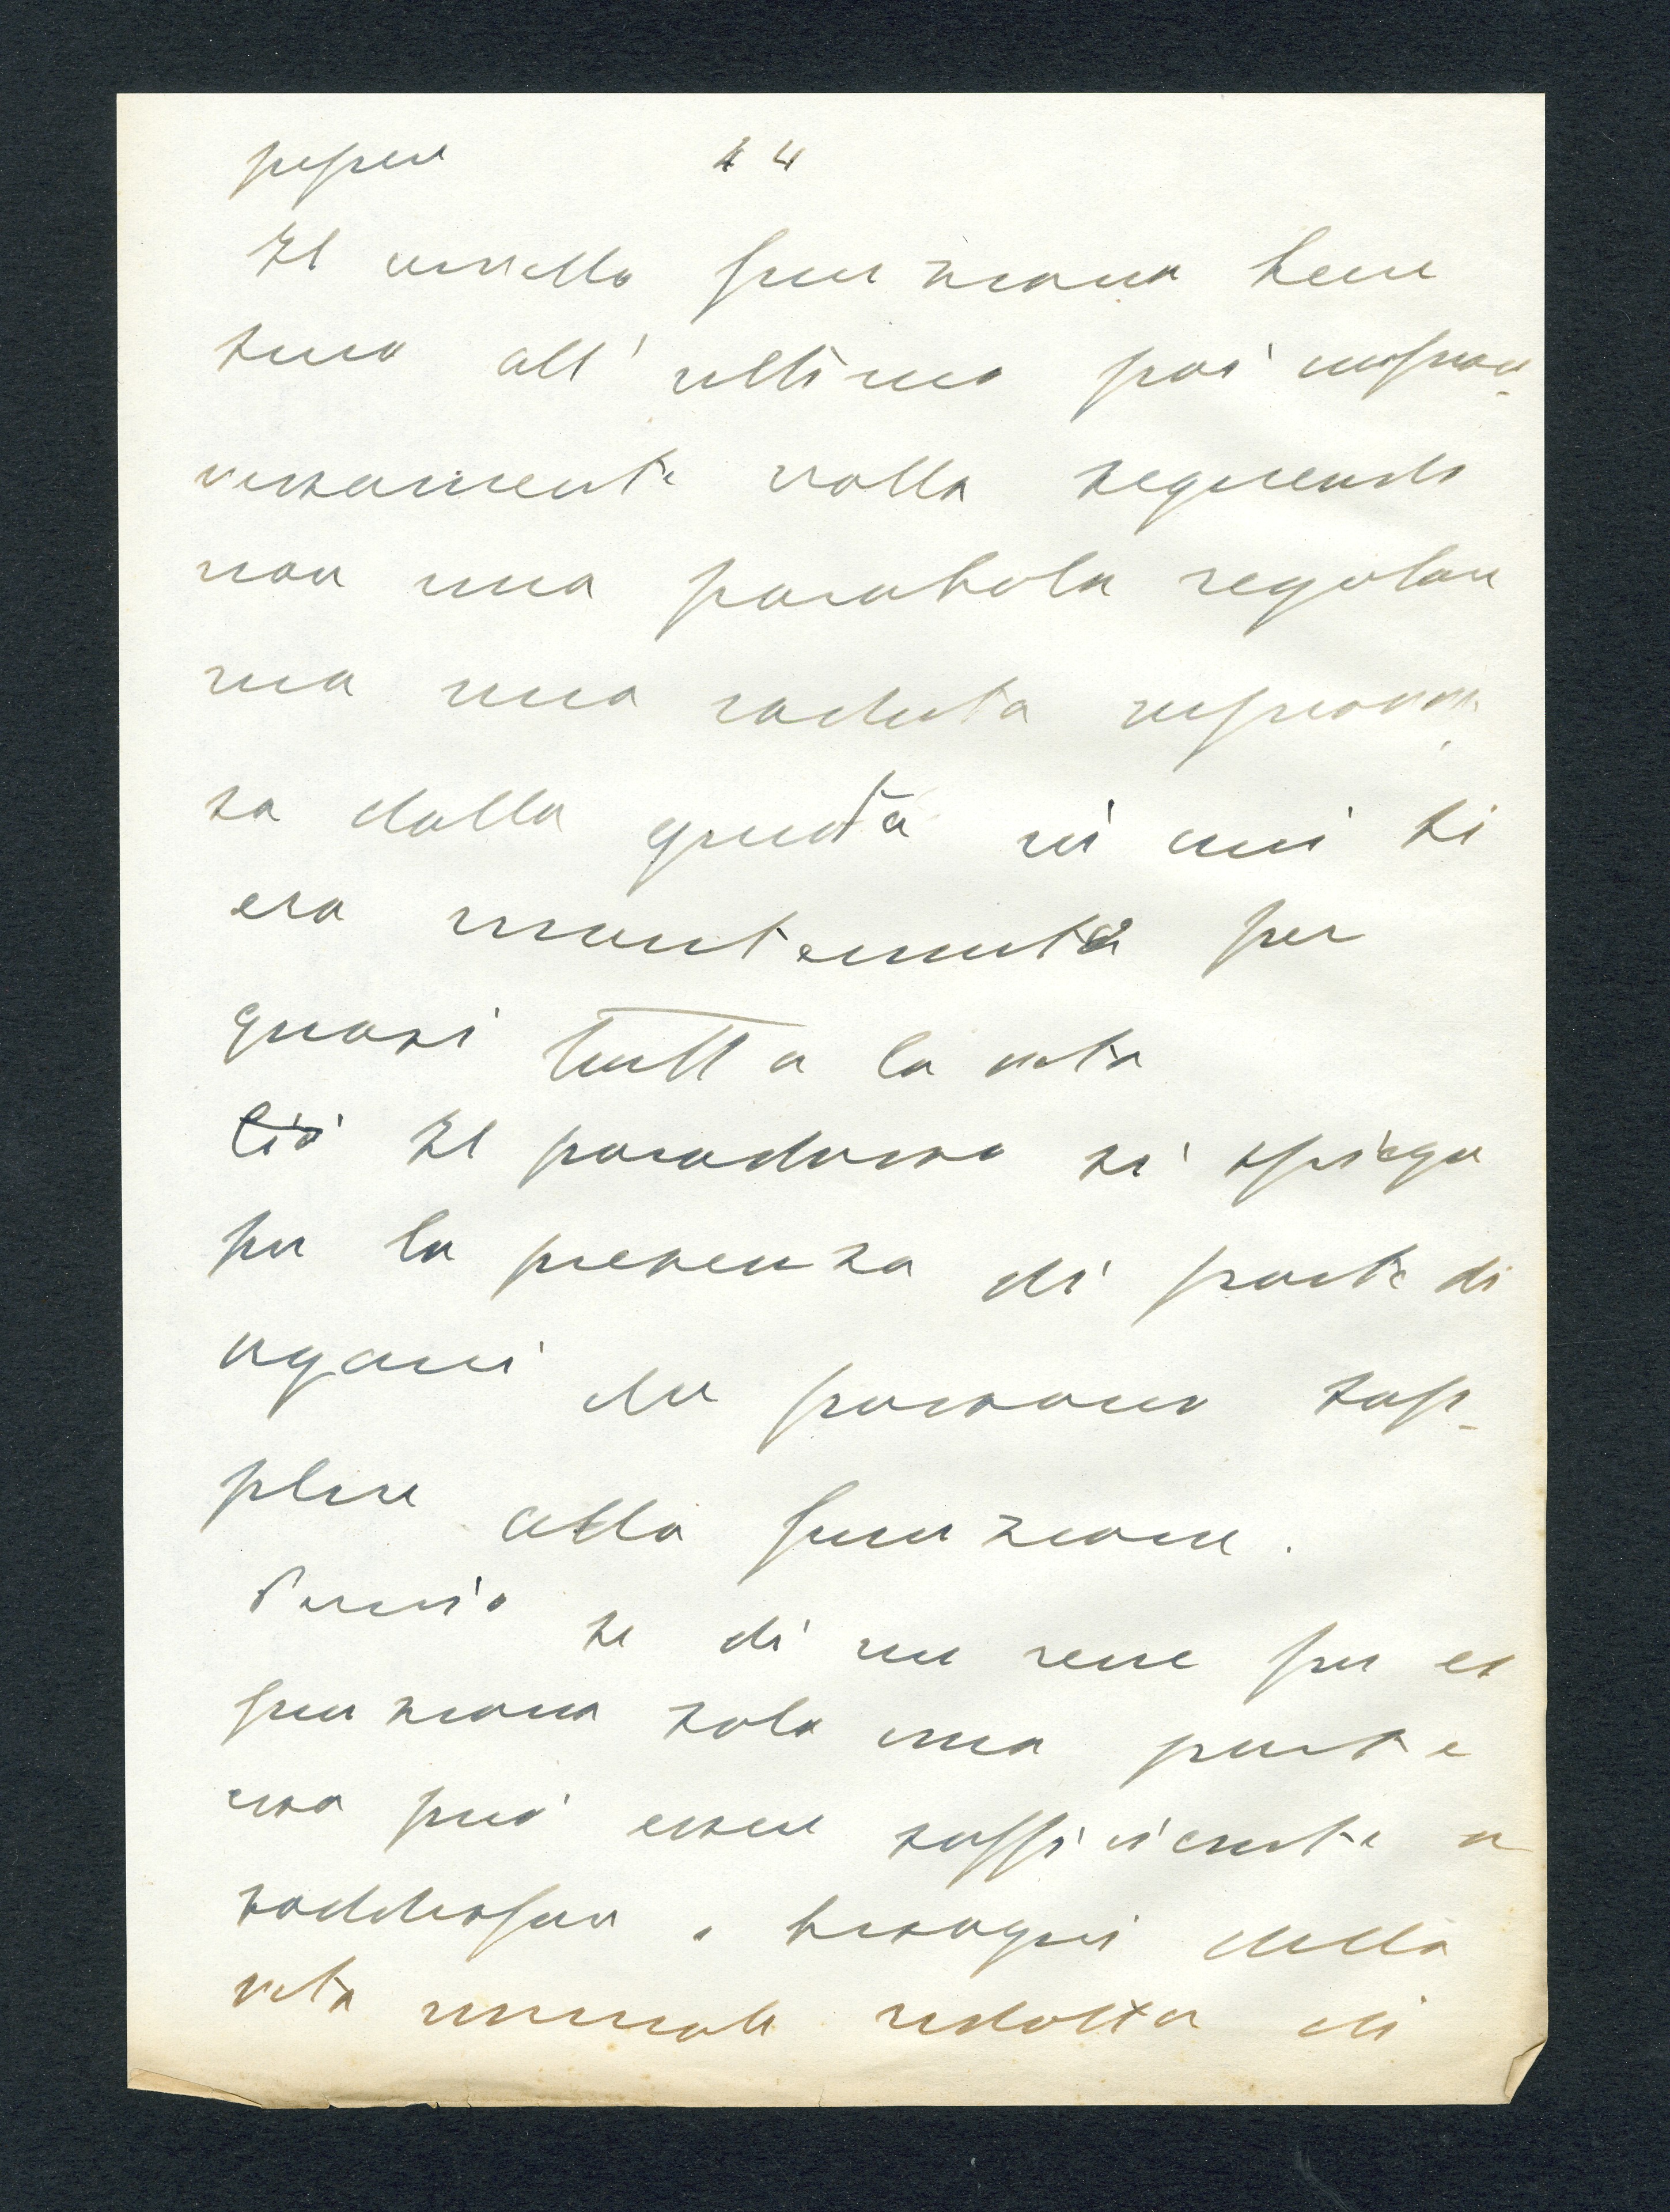 44
Il cervello funziona bene
sino all'ultimo poi improv-
visamente crolla seguendo
non una parabola regolare
ma una caduta improvvi-
sa dalla quota in cui si
era mantenuta per
quasi tutta la vita
Ciò Il paradosso si spiega
per la presenza di parte di
organi che possano sup-
plire alla funzione.
Perciò se di un rene per es
funziona solo una parte
essa può essere sufficiente a
soddisfare i bisogni della
vita normale ridotta di